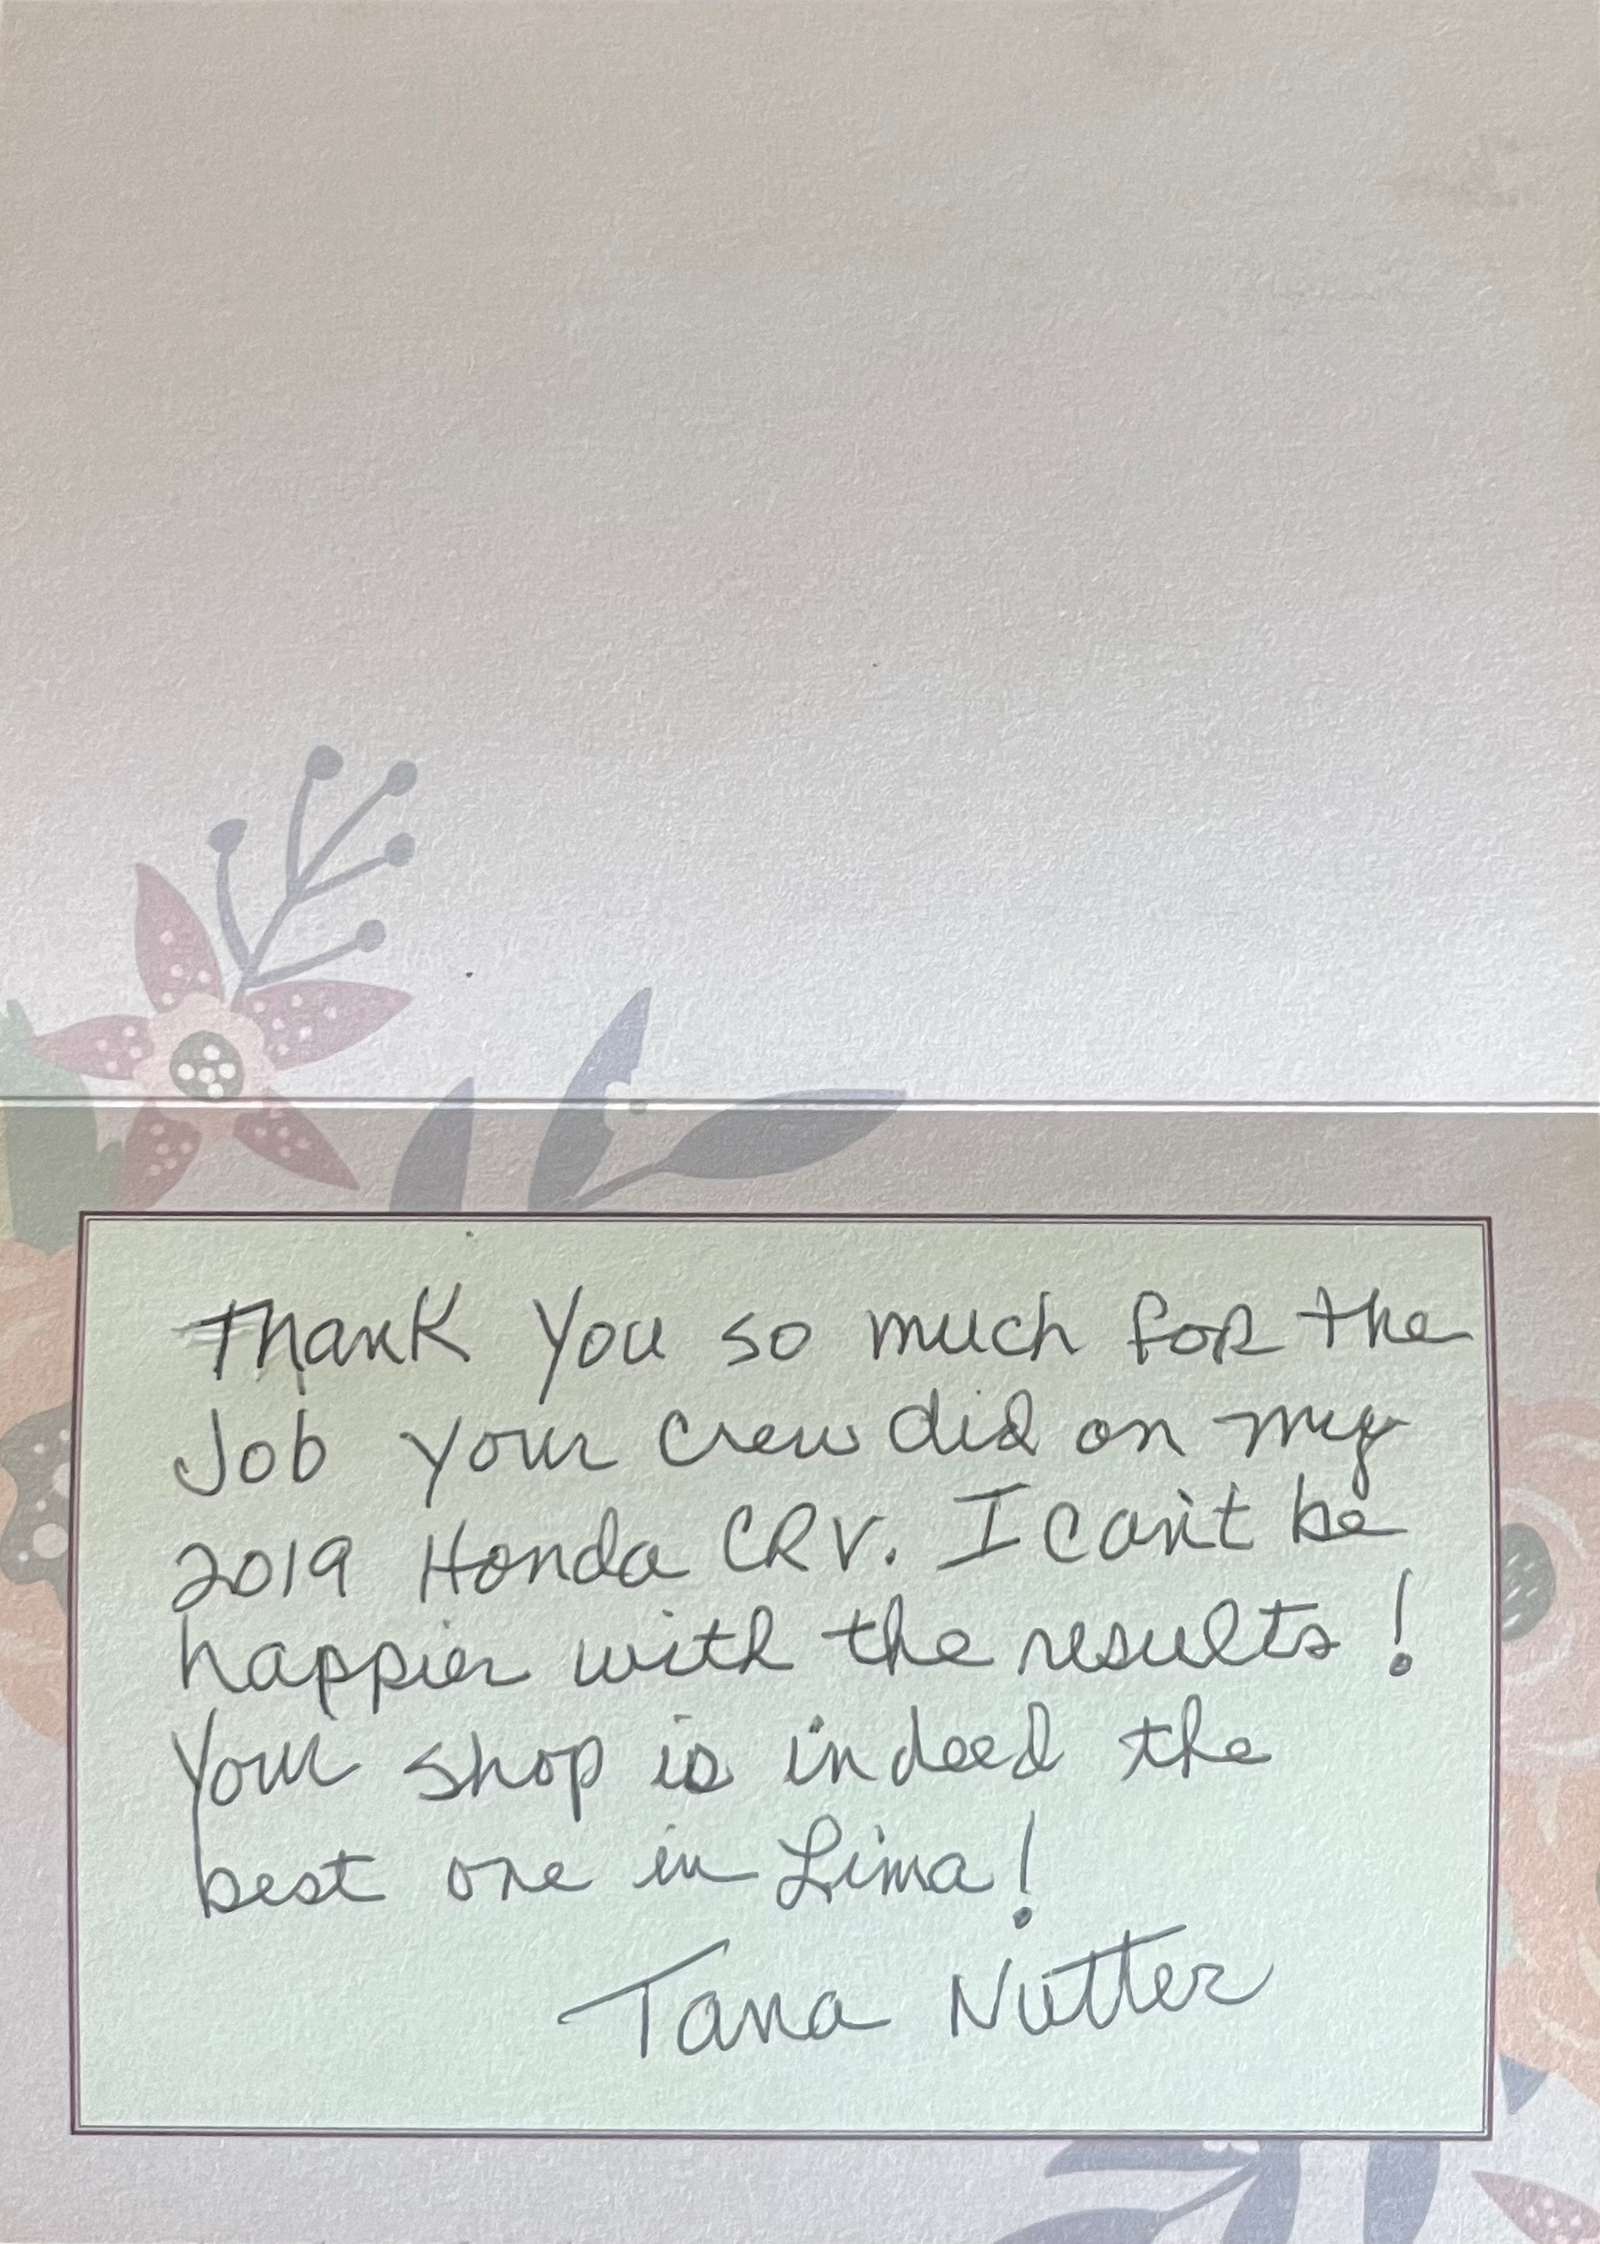 Thank you so much for the
Job your crew did on my
2019 Honda CRV. I can't be
happier with the results!
Your shop is indeed the
best one in Lima!
Tana Nutter